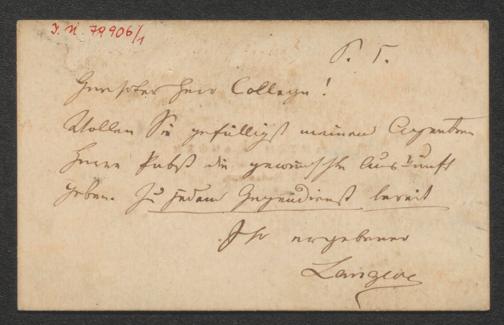 I. N. 79906/1
P. T.
Geehrter Herr College!
Wollen Sie gefälligst meinem Agenten
Herrn Pabst die gewünschte Auskunft
geben. Zu jedem Gegendienst bereit
Ihr ergebener